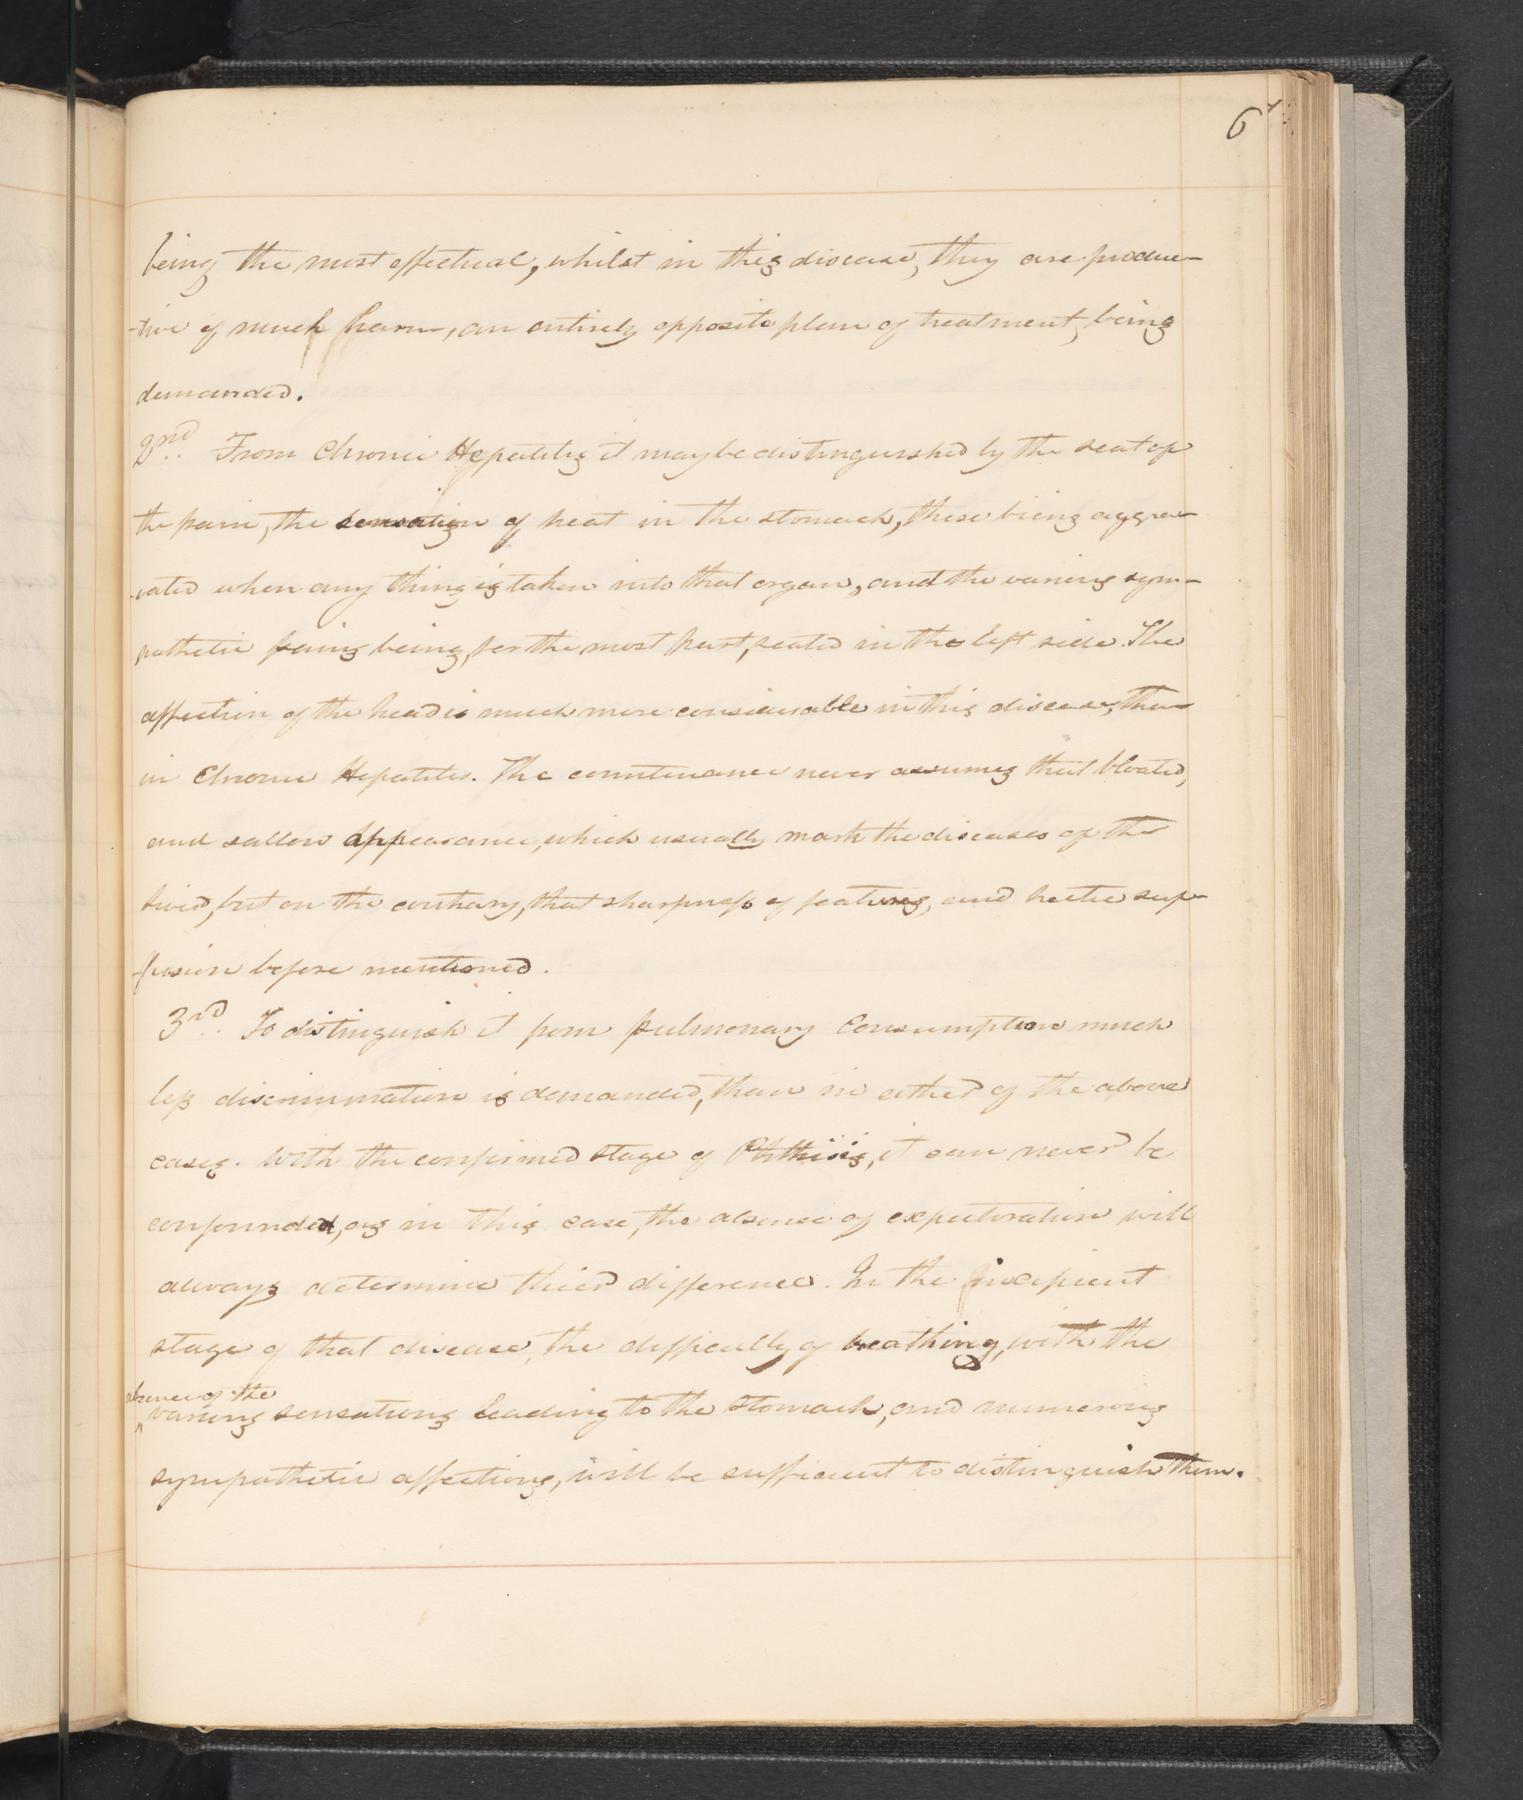 6
being the most effectual, whilst in this disease, they are produc-
-tive of much harm, an entirely opposite plan of treatment, being
demanded.
2nd. From Chronic Hepatitis it may be distinguished by the seat of
the pain, the sensation of heat in the stomach, these being aggra-
-vated when any thing is taken into that organ, and the various sym-
pathetic pains being, for the most part, seated in the left side. The
affection of the head is much more considerable in this disease, than
in Chronic Hepatitis. The countenance never assumes that bloated,
and sallow appearance, which usually mark the diseases of the
liver, but on the contrary, that sharpness of features, and hectic suf-
-fusion before mentioned.
3rd. To distinguish it from pulmonary Consumption much
less discrimination is demanded, than in either of the above
cases. With the confirmed stage of Phthisis, it can never be
confounded, as in this case, the absence of expectoration will
always determine thier difference. In the incipient
stage of that disease, the difficulty of breathing, with the
absence of the
various sensations leading to the stomach, and numerous
sympathetic affections, will be sufficient to distinguish them.